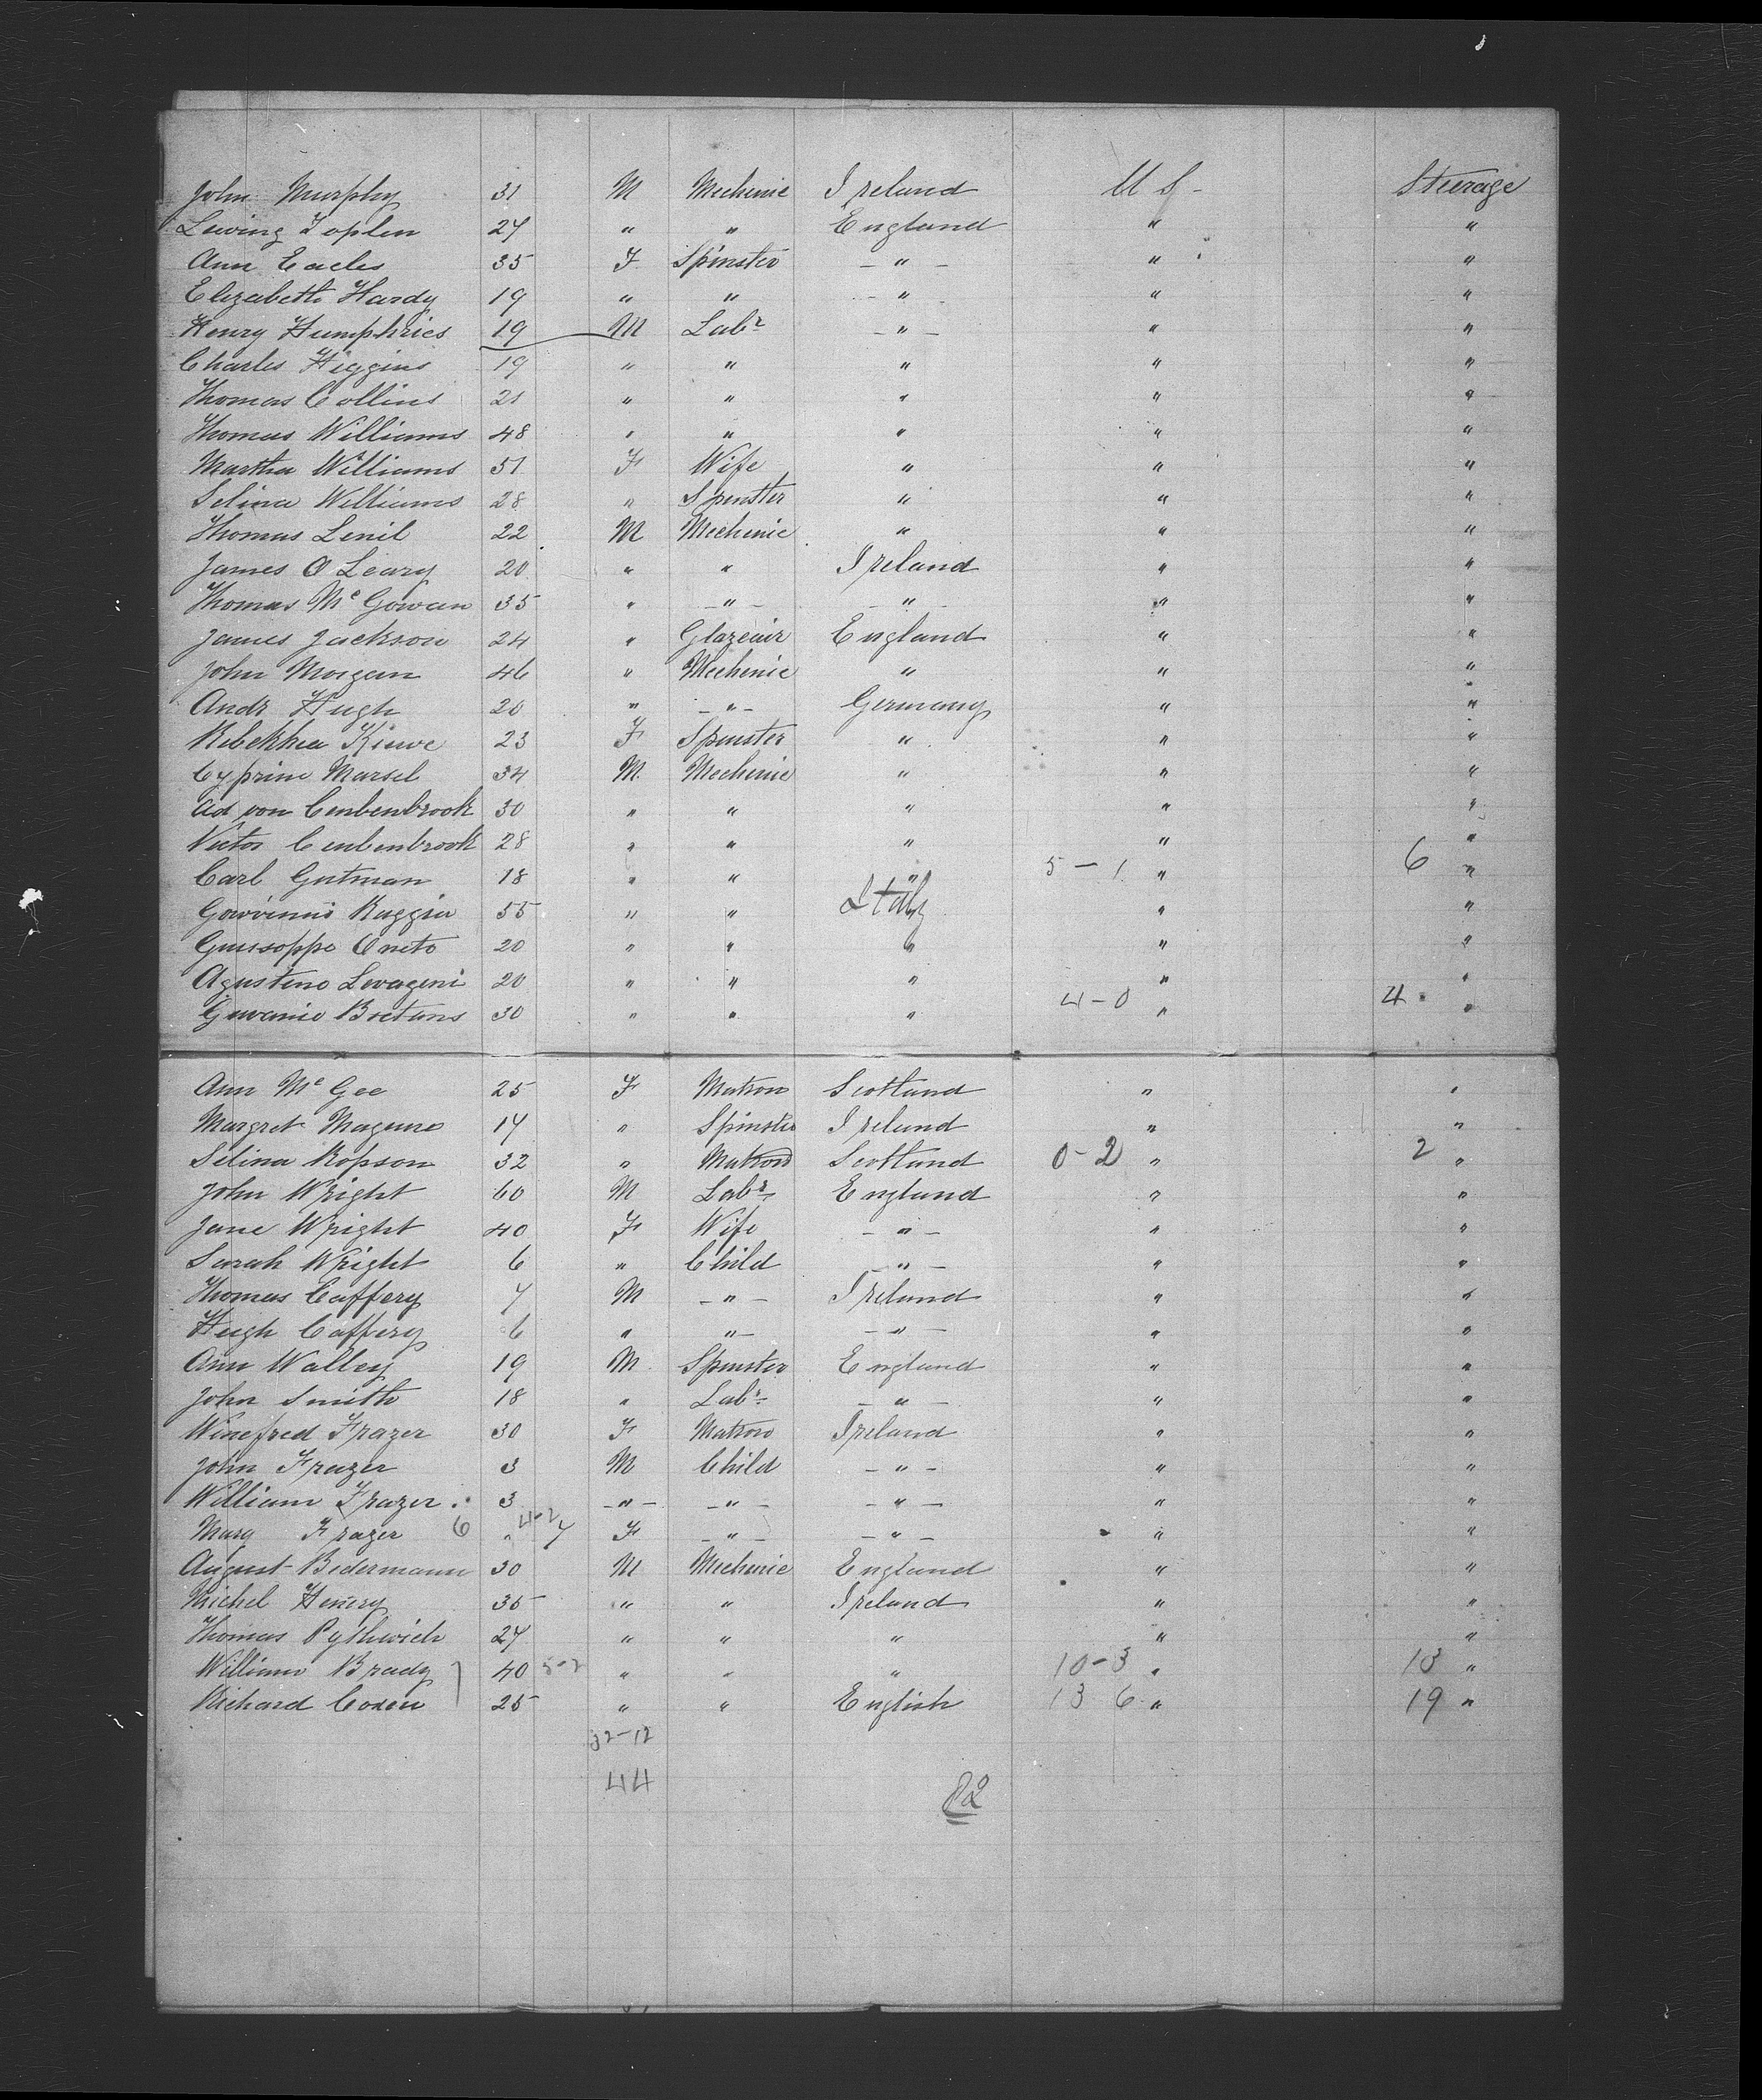 John Murphy 31 M Mechenic Ireland U S - Steerage
Lewing Toplen 27 " " England " "
Ann Eacles 35 F Spinster - " - " "
Elizabeth Hardy 19 " " - " - " "
Henry Humphries 19 M Labr - " - " "
Charles Higgins 19 " " " " "
Thomas Collins 21 " " " " "
Thomas Williams 48 " " " " "
Martha Williams 51 F Wife " " "
Selina Williams 28 " Spinster " " "
Thomas Lenil 22 M Mechenic " " "
James O Leary 20 " " Ireland " "
Thomas Mc Gowan 35 " - " - - " - " "
James Jackson 24 " Glazeair England " "
John Morgan 46 " Mechenic " " "
Andr Hugh 20 " - " - Germany " "
Rebekka Kiewe 23 F Spinster " " "
Cyprine Marsel 34 M Mechenic " " "
Ad von Cenbenbrook 30 " " " " "
Victor Cenbenbrook 28 " " " " "
Carl Gutman 18 " " " 5 - 1 " 6 "
Gowvinnis Raggia 55 " " Italy " "
Guissoppe Oneto 20 " " " " "
Agustino Levagini 20 " " " " "
Giwanie Bretans 30 " " " 4 - 0 " 4 "
Ann Mc Gee 25 F Matron Scotland " "
Margret Maguire 17 " Spinster Ireland " "
Selina Ropson 32 " Matron Scotland 0 - 2 " 2 "
John Wright 60 M Labr England " "
Jane Wright 40 F Wife - " - " "
Sarah Wright 6 " Child - " - " "
Thomas Caffery 7 M - " - Ireland " "
Hugh Caffery 6 " " - - " - " "
Ann Walley 19 M Spinster England " "
John Smith 18 " Labr - " - " "
Winefred Frazer 30 F Matron Ireland " "
John Frazer 3 M Child - " - " "
William Frazer 3 - " - - " - - " - " "
Mary Frazer 6 " 4-2 7 F - " - - " - " "
August Bedermann 30 M Mechenic England " "
Michel Henery 35 " " Ireland " "
Thomas Pythwich 27 " " " " "
William Brady 40 5-2 " " " 10 - 3 " 13 "
Richard Coxen 25 " " English 13 6 " 19 "
32 - 12
44
82